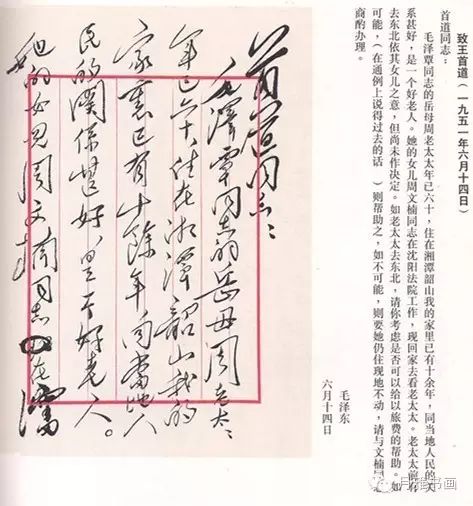 致王首道（一九五一年六月十四日）
首道同志：
毛泽覃同志的岳母周老太太年已六十，住在湘潭韶山我的家里已有十余年，同当地人民的关
系甚好，是一个好老人。她的女儿周文楠同志在沈阳法院工作，现回家去看老太太。老太太前有
去东北依其女儿之意，但尚未作决定。如老太太去东北，请你考虑是否可以给以旅费的帮助。如
可能，（在通例上说得过去的话 ）则帮助之，如不可能，则要她仍住现地不动，请与文楠同
商酌办理。
毛泽东
六月十四日
首道同志：
毛澤覃同志的岳母周老太太
年已六十，住在湘潭韶山我的
家裏已有十餘年，同當地人
民的關係甚好，是一个好老人。
她的女兒周文楠同志在瀋
月雅书画